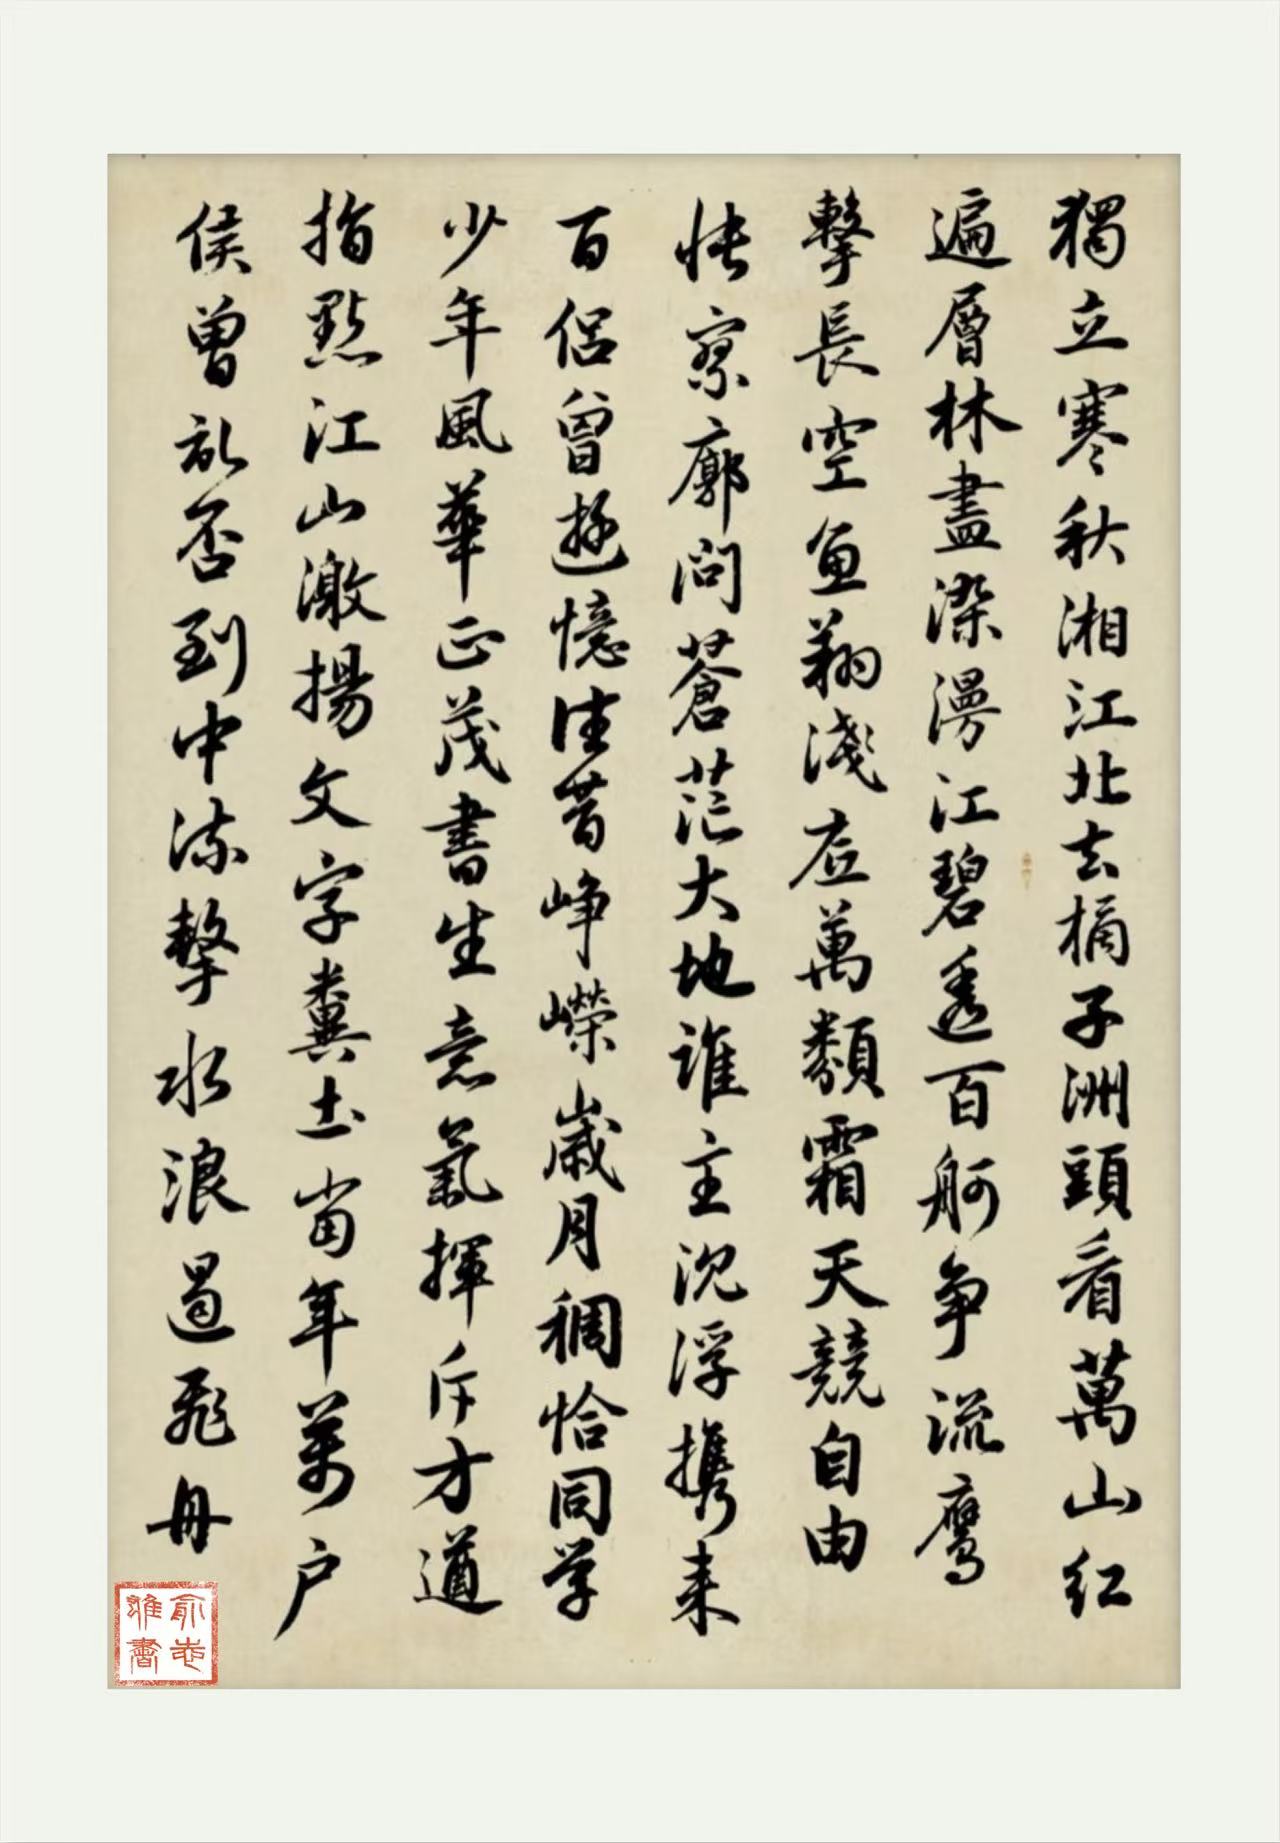 獨立寒秋湘江北去橘子洲頭看萬山紅
遍層林盡染漫江碧透百舸争流鹰
擊長空魚翔淺底萬類霜天競自由
悵寥廓問蒼茫大地誰主沉浮携来
百侣曾遊憶往昔峥嶸歲月稠恰同学
少年風華正茂書生意氣揮斥方遒
指點江山激揚文字糞土當年萬户
侯曾記否到中流擊水浪遏飛舟